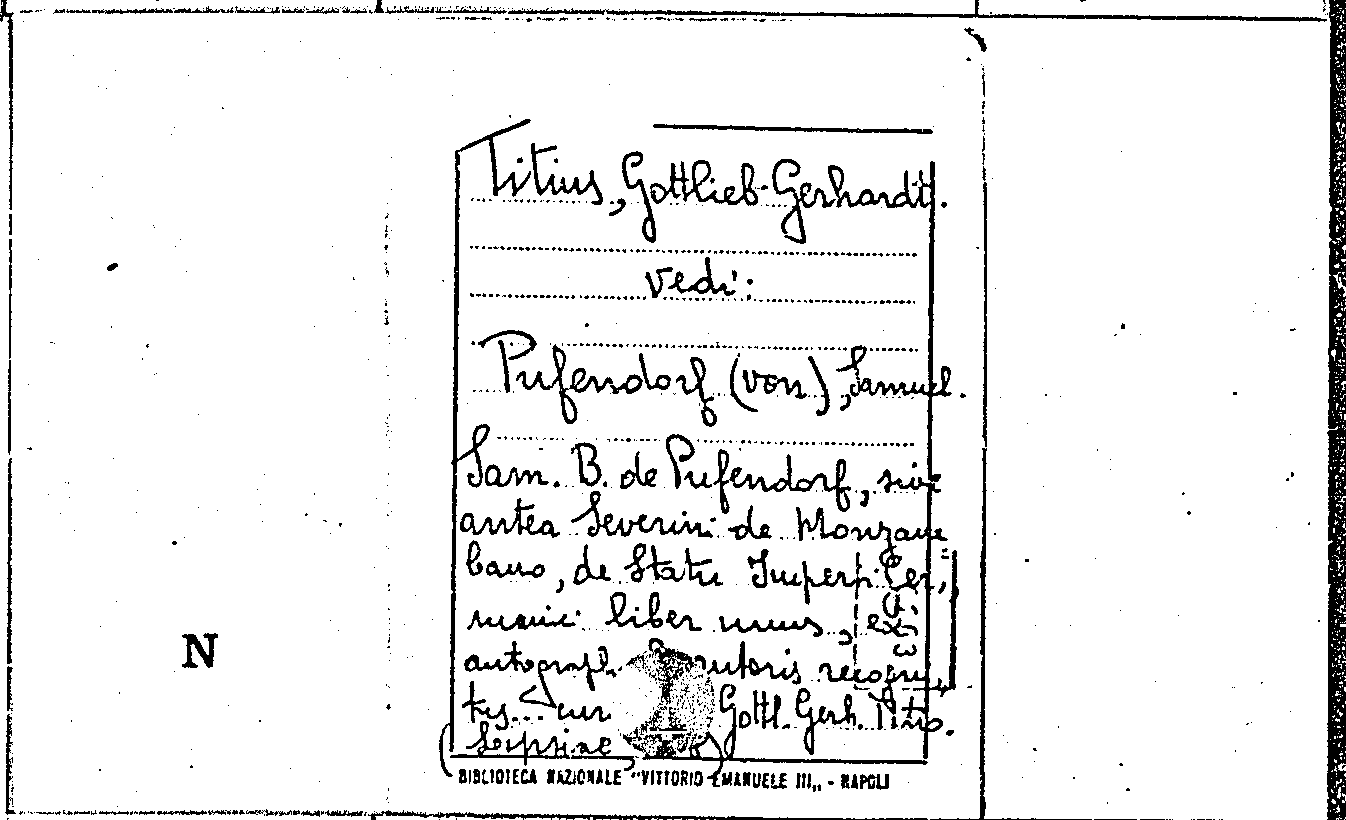 Titius, Gottlieb-Gerhardt.
vedi:
Pufendorf (von), Samuel.
Sam. B. de Pufendorf, sive
antea Severini de Monzam
bano, de Statu Imperii Ger,
manici liber unus, ex
autoris recogni,
tus... cum Gottl. Gerh. Titio.
(Lipsiae
N
BIBLIOTECA NAZIONALE "VITTORIO EMANUELE III„ - NAPOLI